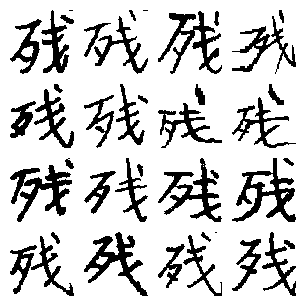 残残残残
残残残残
残残残残
残残残残